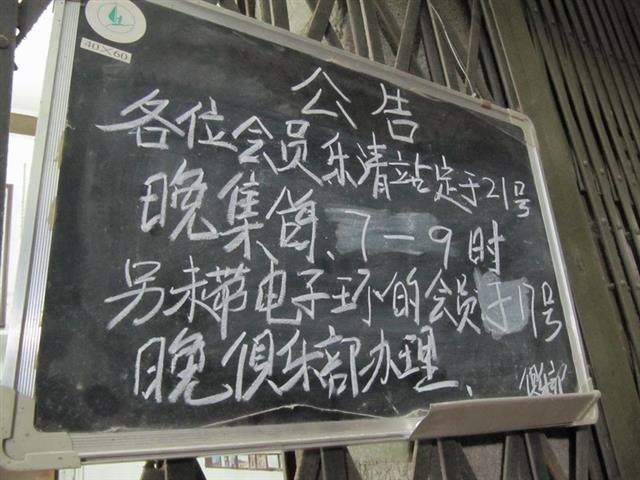 40×60
公告
各位会员乐清站定于21号
晚集鸽、7-9时
另未带电子环的会员于17号
晚俱乐部办理、
俱乐部